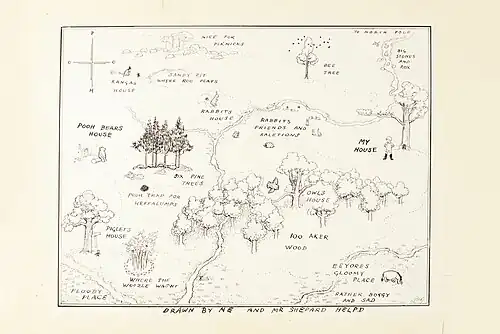 TO NORTH POLE
NICE FOR
PIKNICKS
BEE
TREE
BIG
STONES
AND
ROX
P
O
O
H
KANGAS
HOUSE
SANDY PIT
WHERE ROO PLAYS
RABBITS
HOUSE
RABBITS
FRIENDS AND
RALETIONS
POOH BEARS
HOUSE
MY
HOUSE
SIX PINE
TREES
POOH TRAP FOR
HEFFALUMPS
OWLS
HOUSE
PIGLETS
HOUSE
100 AKER
WOOD
EEYORES
GLOOMY
PLACE
WHERE THE
WOOZLE WASNT
FLOODY
PLACE
RATHER BOGGY
AND SAD
DRAWN BY ME AND MR SHEPARD HELPD